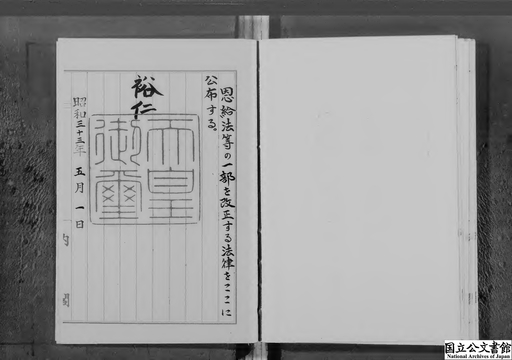 恩給法等の一部を改正する法律をここに
公布する。
裕仁
天皇
御璽
昭和三十三年五月一日
内閣
国立公文書館
National Archives of Japan